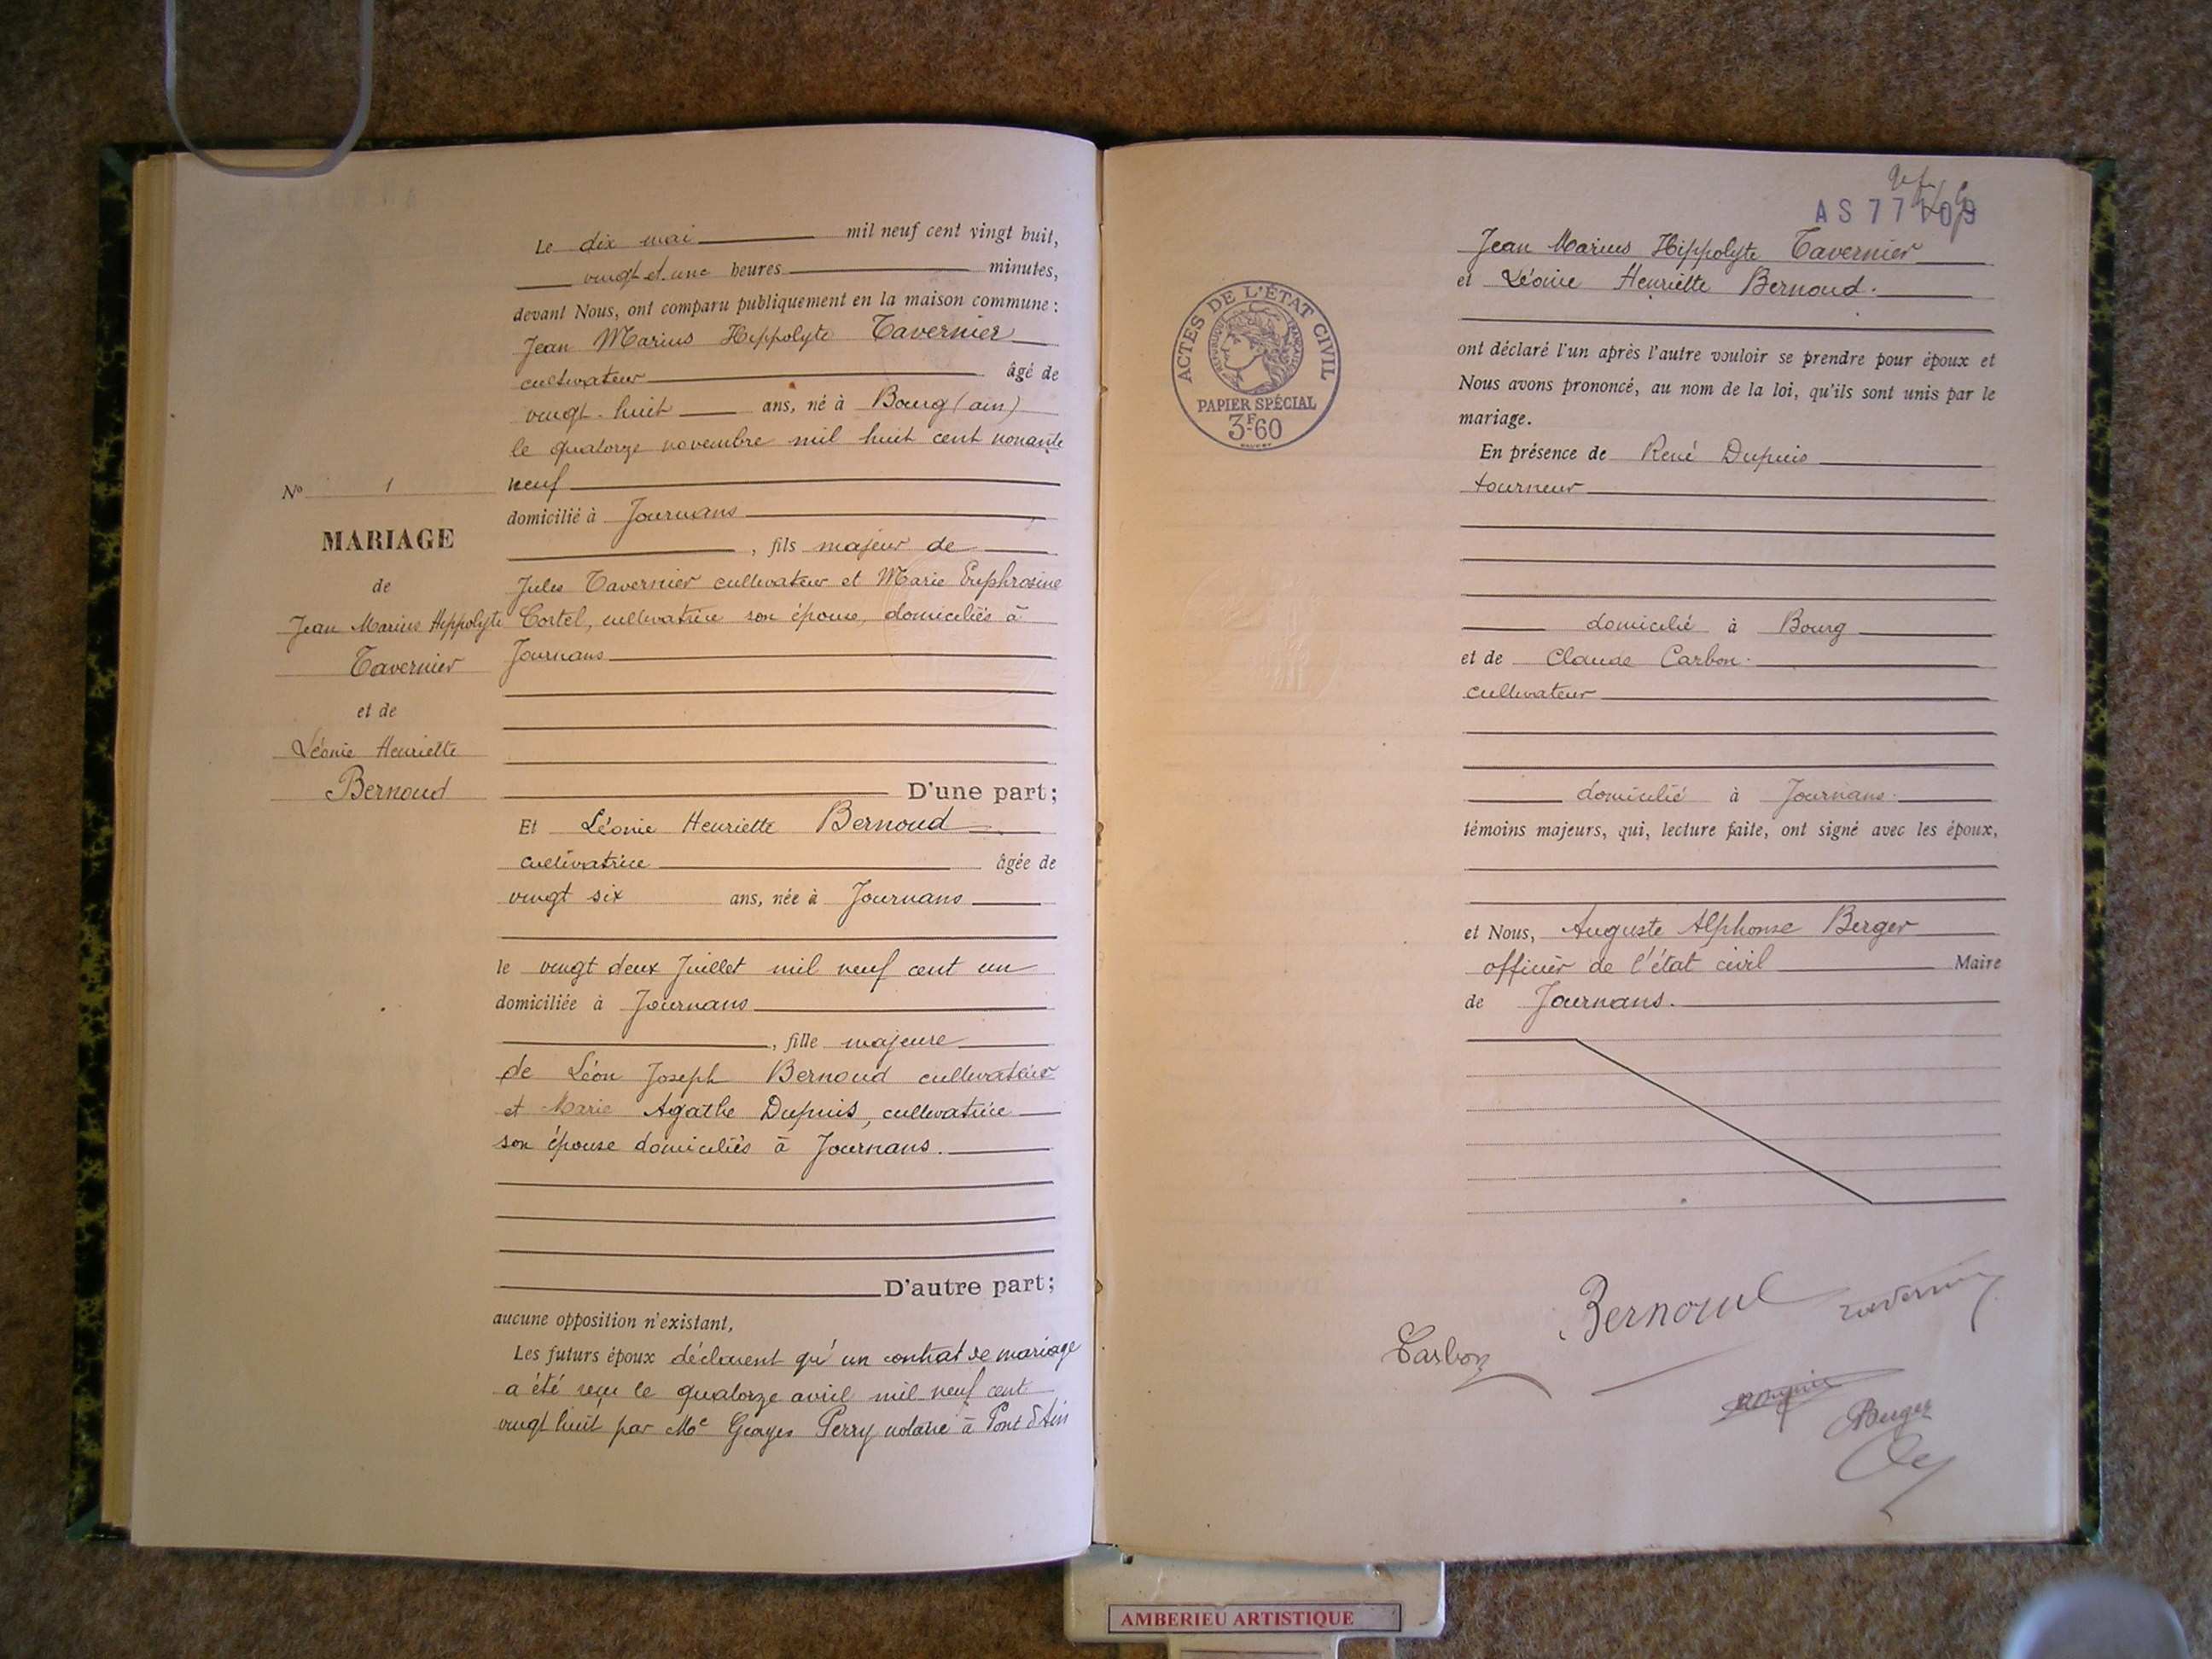 Le dix mai mil neuf cent vingt huit,
vingt et une heures minutes,
devant Nous, ont comparu publiquement en la maison commune :
Jean Marius Hippolyte Tavernier
cultivateur âgé de
vingt-huit ans, né à Bourg (ain)
le quatorze novembre mil huit cent nonante
neuf
domicilié à Journans
, fils majeur de
Jules Tavernier cultivateur et Marie Euphrosine
Cortel, cultivatrice son épouse, domiciliés à
Journans
D'une part;
Et Léonie Henriette Bernoud
cultivatrice âgée de
vingt six ans, née à Journans
le vingt deux Juillet mil neuf cent un
domiciliée à Journans
, fille majeure
de Léon Joseph Bernoud cultivateur
et Marie Agathe Dupuis, cultivatrice
son épouse domiciliés à Journans.
D'autre part;
aucune opposition n'existant,
Les futurs époux déclarent qu'un contrat de mariage
a été reçu le quatorze avril mil neuf cent
vingt huit par Me Georges Perry notaire à Pont d'Ain
No 1
MARIAGE
de
Jean Marius Hippolyte
Tavernier
et de
Léonie Henriette
Bernoud
AS 77109
Jean Marius Hippolyte Tavernier
et Léonie Henriette Bernoud.
ont déclaré l'un après l'autre vouloir se prendre pour époux et
Nous avons prononcé, au nom de la loi, qu'ils sont unis par le
mariage.
En présence de René Dupuis
tourneur
domicilié à Bourg
et de Claude Carbon.
cultivateur
domicilié à Journans.
témoins majeurs, qui, lecture faite, ont signé avec les époux,
et Nous, Auguste Alphonse Berger
officier de l'état civil Maire
de Journans.
ACTES DE L'ÉTAT CIVIL
RÉPUBLIQUE FRANÇAISE
PAPIER SPÉCIAL
3F60
Bernoud
Tavernier
Carbon
Berger
AMBERIEU ARTISTIQUE